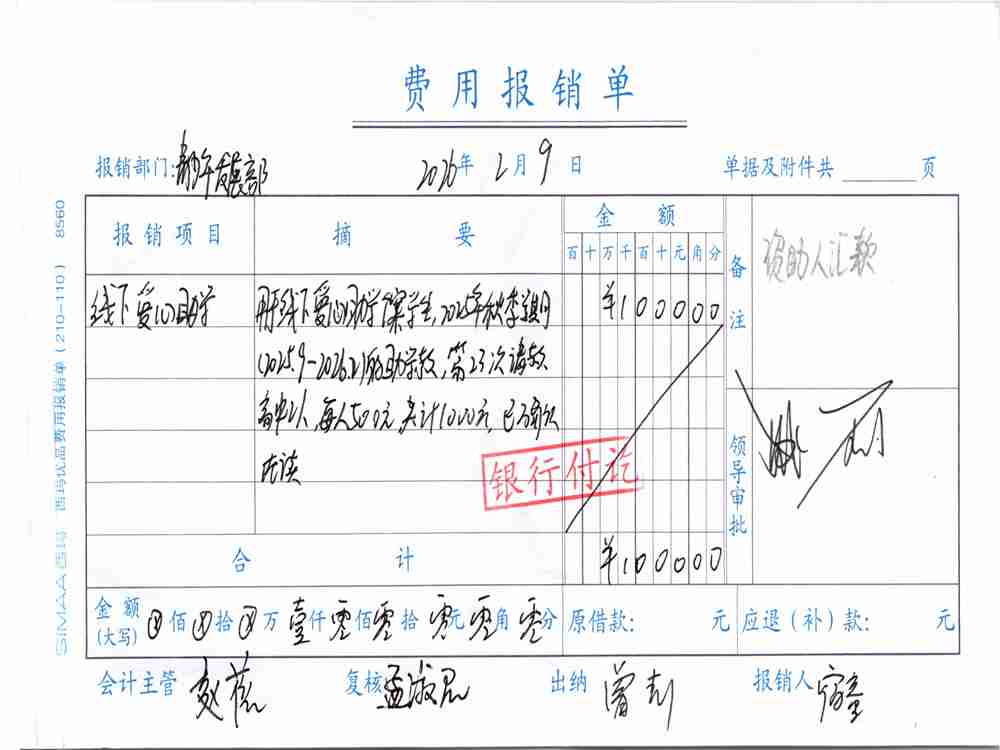 费用报销单
报销部门: 青少年发展部 2026年 2月 9日 单据及附件共 页
报销项目 摘要 金额 备注
百十万千百十元角分
资助人汇款
线下爱心助学 用于线下爱心助学 学生,2025年秋季学期 ¥100000
(2025.9-2026.2)的助学款,第23次请款
高中2人,每人500元,共计1000元,已
在读
银行付讫
领导审批
合计 ¥100000
金额(大写) 佰 拾 万 壹仟 零佰 零拾 零元 零角 零分 原借款: 元 应退(补)款: 元
会计主管 复核 孟淑思 出纳 曾 报销人
SIMAA 西玛 西玛优品费用报销单(210-110) 8560